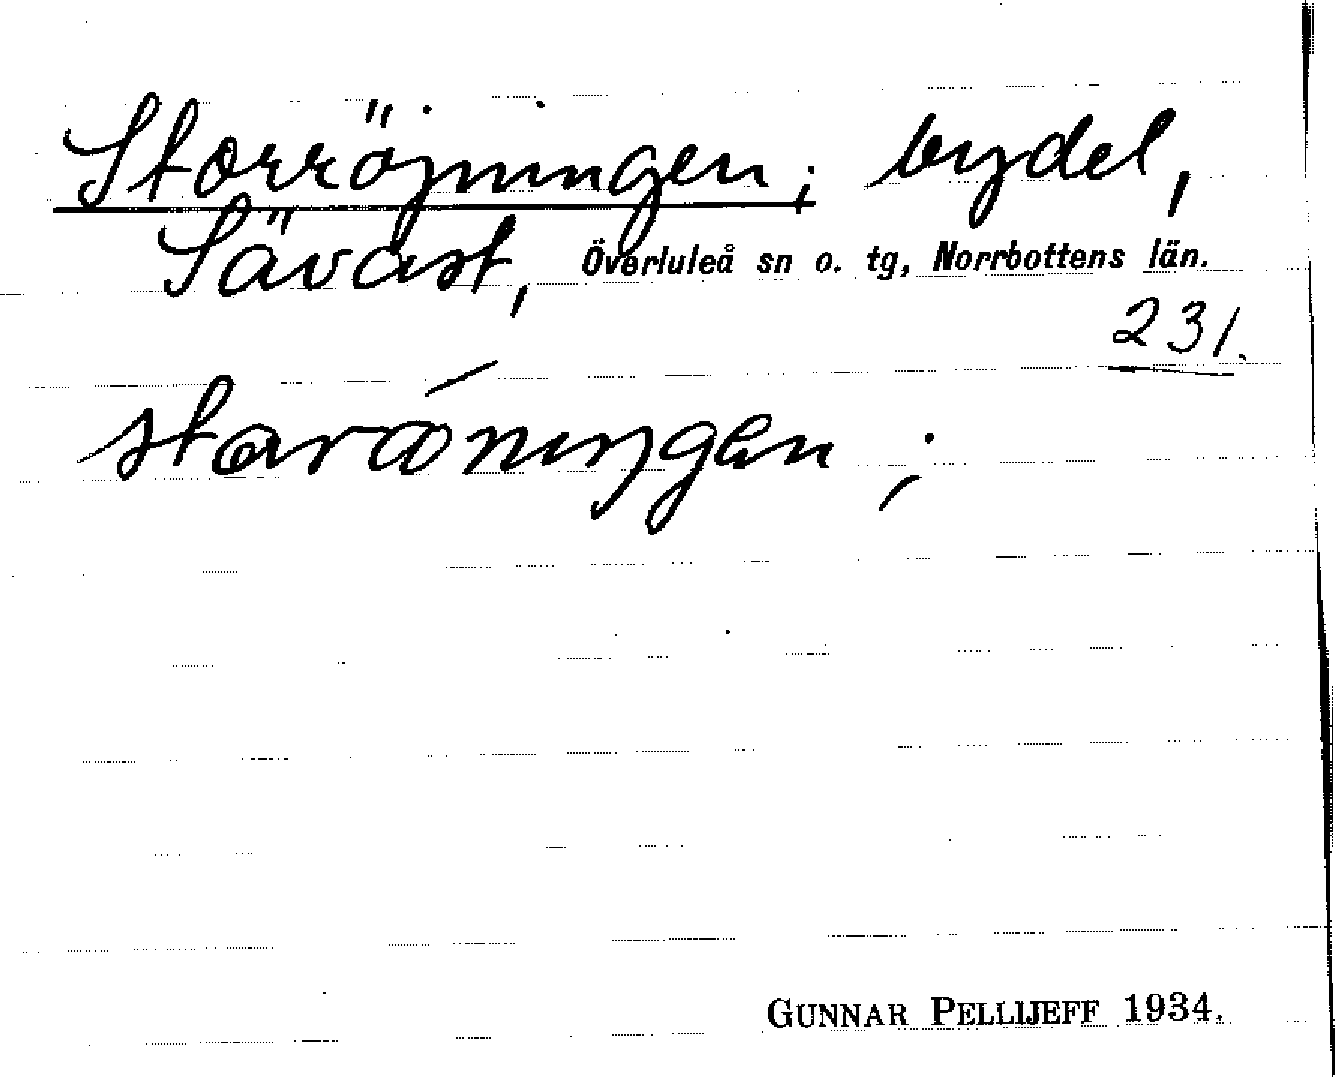 Storröjningen; bydel,
Sävast, Överluleå sn o. tg, Norrbottens län.
231.
storöningen ;
GUNNAR PELLIJEFF 1934.